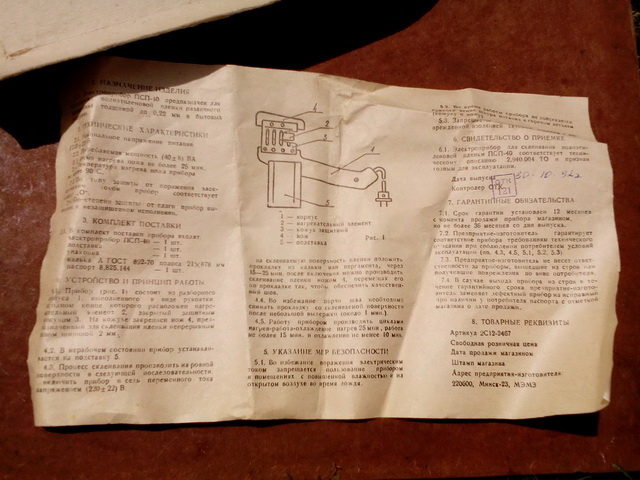 НАЗНАЧЕНИЕ ИЗДЕЛИЯ
ПСП-40 предназначен для
полиэтиленовой пленки различной
толщиной до 0,22 мм в бытовой
ТЕХНИЧЕСКИЕ ХАРАКТЕРИСТИКИ
напряжение питания
мощность (40±8) ВА
нагрева ножа не более 25 мин.
температура нагрева ножа прибора
90
защиты от поражения
прибор соответствует
степени защиты от влаги прибор
незащищенном исполнении.
3. КОМПЛЕКТ ПОСТАВКИ
В комплект поставки прибора входят
электроприбор ПСП-40 — 1 шт.
подставка — 1 шт.
упаковка — 1 шт.
калька А ГОСТ 892-70 полоса
паспорт 8.825.144 — 1 шт.
УСТРОЙСТВО И ПРИНЦИП РАБОТЫ
Прибор (рис. 1) состоит из разборного
корпуса 1, выполненного в виде рукоятки,
которого расположен нагре-
вательный элемент 2, закрытый защитным
кожухом 3. На кожухе закреплен нож 4, пред-
назначенный для склеивания пленки непрерывным
швом шириной 2 мм.
4.2. В нерабочем состоянии прибор устанавли-
вается на подставку 5.
4.3. Процесс склеивания производить на ровной
поверхности в следующей последовательности:
включить прибор в сеть переменного тока
напряжением (220±22) В
4
2
3
1
5
1 — корпус
2 — нагревательный элемент
3 — кожух защитный
4 — нож
5 — подставка
Рис. 1
на склеиваемую поверхность пленки положить
прокладку из кальки или пергамента, через
15—25 мин. после включения можно производить
склеивание пленки ножом 4, перемещая его
по прокладке так, чтобы обеспечить качествен-
ный шов.
4.4. Во избежание порчи шва необходимо
снимать прокладку со склеиваемой поверхности
после небольшой выдержки (около 1 мин.)
4.5. Работу прибором производить циклами
нагрев-работа-охлаждение: нагрев 25 мин, работа
не более 15 мин. и охлаждение не менее 10 мин.
5. УКАЗАНИЕ МЕР БЕЗОПАСНОСТИ
5.1. Во избежание поражения электрическим
током запрещается пользование прибором
в помещениях с повышенной влажностью и на
открытом воздухе во время дождя.
5.2. Во время работы прибора не
5.3. Запрещается
6. СВИДЕТЕЛЬСТВО О ПРИЕМКЕ
6.1. Электроприбор для склеивания полиэти-
леновой пленки ПСП-40 соответствует техни-
ческому описанию 2.940.004 ТО и признан
годным для эксплуатации.
Дата выпуска
Контролер ОТК
ОТК
121
7. ГАРАНТИЙНЫЕ ОБЯЗАТЕЛЬСТВА
7.1. Срок гарантии установлен 12 месяцев
с момента продажи прибора магазином,
но не более 36 месяцев со дня выпуска.
7.2. Предприятие-изготовитель гарантирует
соответствие прибора требованиям технического
описания при соблюдении потребителем условий
эксплуатации (пп. 4.3, 4.5, 5.1, 5.2, 5.3)
7.3. Предприятие-изготовитель не несет ответ-
ственности за приборы, вышедшие из строя или
получившие повреждения по вине потребителя.
7.4. В случае выхода прибора из строя в те-
чение гарантийного срока предприятие-изгото-
витель заменяет дефектный прибор на исправный
при наличии у потребителя паспорта с отметкой
магазина о дате продажи.
8. ТОВАРНЫЕ РЕКВИЗИТЫ
Артикул 2С12-2467
Свободная розничная цена
Дата продажи магазином
Штамп магазина
Адрес предприятия-изготовителя
220600, Минск-23, МЭМЗ